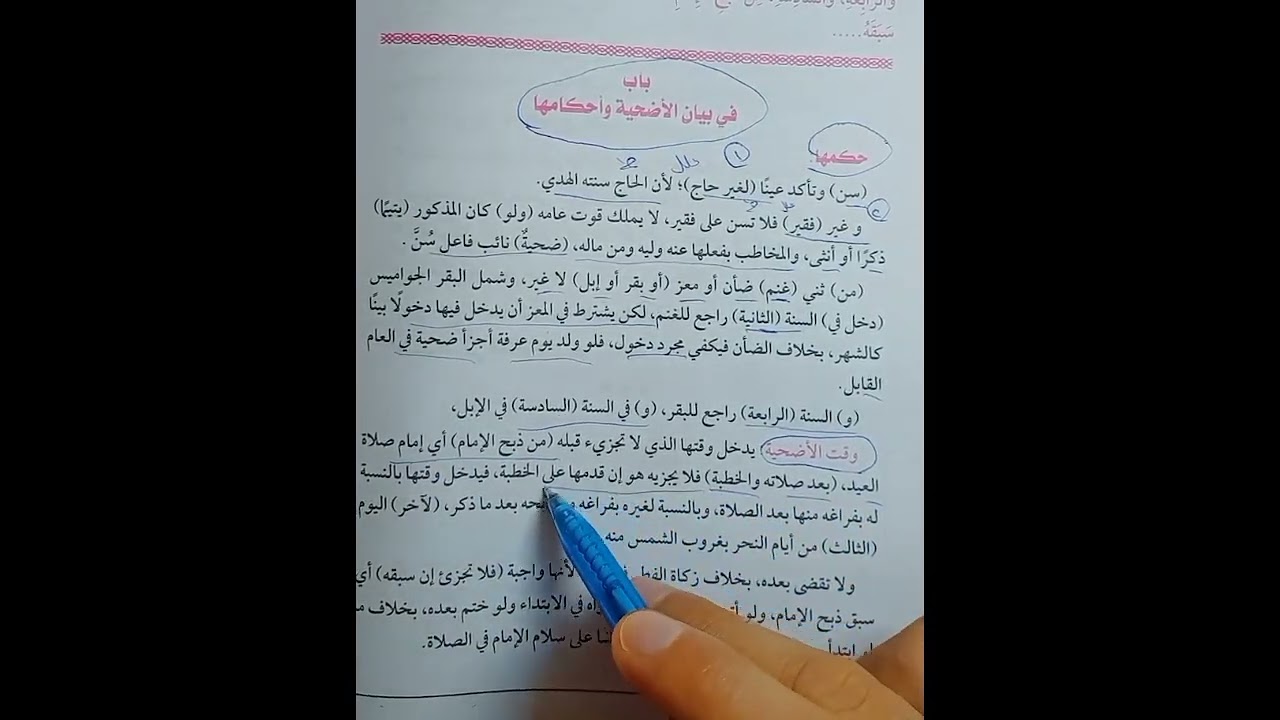 والرابعة، والسادسة،
سَبَقَهُ.....
باب
في بيان الأضحية وأحكامها
حكمها:
(سن) وتأكد عينًا (لغير حاج)؛ لأن الحاج سنته الهدي.
و غير (فقير) فلا تسن على فقير، لا يملك قوت عامه (ولو) كان المذكور (يتيمًا)
ذكرًا أو أنثى، والمخاطب بفعلها عنه وليه ومن ماله، (ضحيةٌ) نائب فاعل سُنَّ.
(من) ثني (غنم) ضأن أو معز (أو بقر أو إبل) لا غير، وشمل البقر الجواميس
(دخل في) السنة (الثانية) راجع للغنم، لكن يشترط في المعز أن يدخل فيها دخولًا بينًا
كالشهر، بخلاف الضأن فيكفي مجرد دخول، فلو ولد يوم عرفة أجزأ ضحية في العام
القابل.
(و) السنة (الرابعة) راجع للبقر، (و) في السنة (السادسة) في الإبل،
وقت الأضحية: يدخل وقتها الذي لا تجزيء قبله (من ذبح الإمام) أي إمام صلاة
العيد، (بعد صلاته والخطبة) فلا يجزيه هو إن قدمها على الخطبة، فيدخل وقتها بالنسبة
له بفراغه منها بعد الصلاة، وبالنسبة لغيره بفراغه بعد ما ذكر، (لآخر) اليوم
(الثالث) من أيام النحر بغروب الشمس منه
ولا تقضى بعده، بخلاف زكاة الفطر لأنها واجبة (فلا تجزئ إن سبقه) أي
سبق ذبح الإمام، ولو في الابتداء ولو ختم بعده، بخلاف
لو ابتدأ على سلام الإمام في الصلاة.